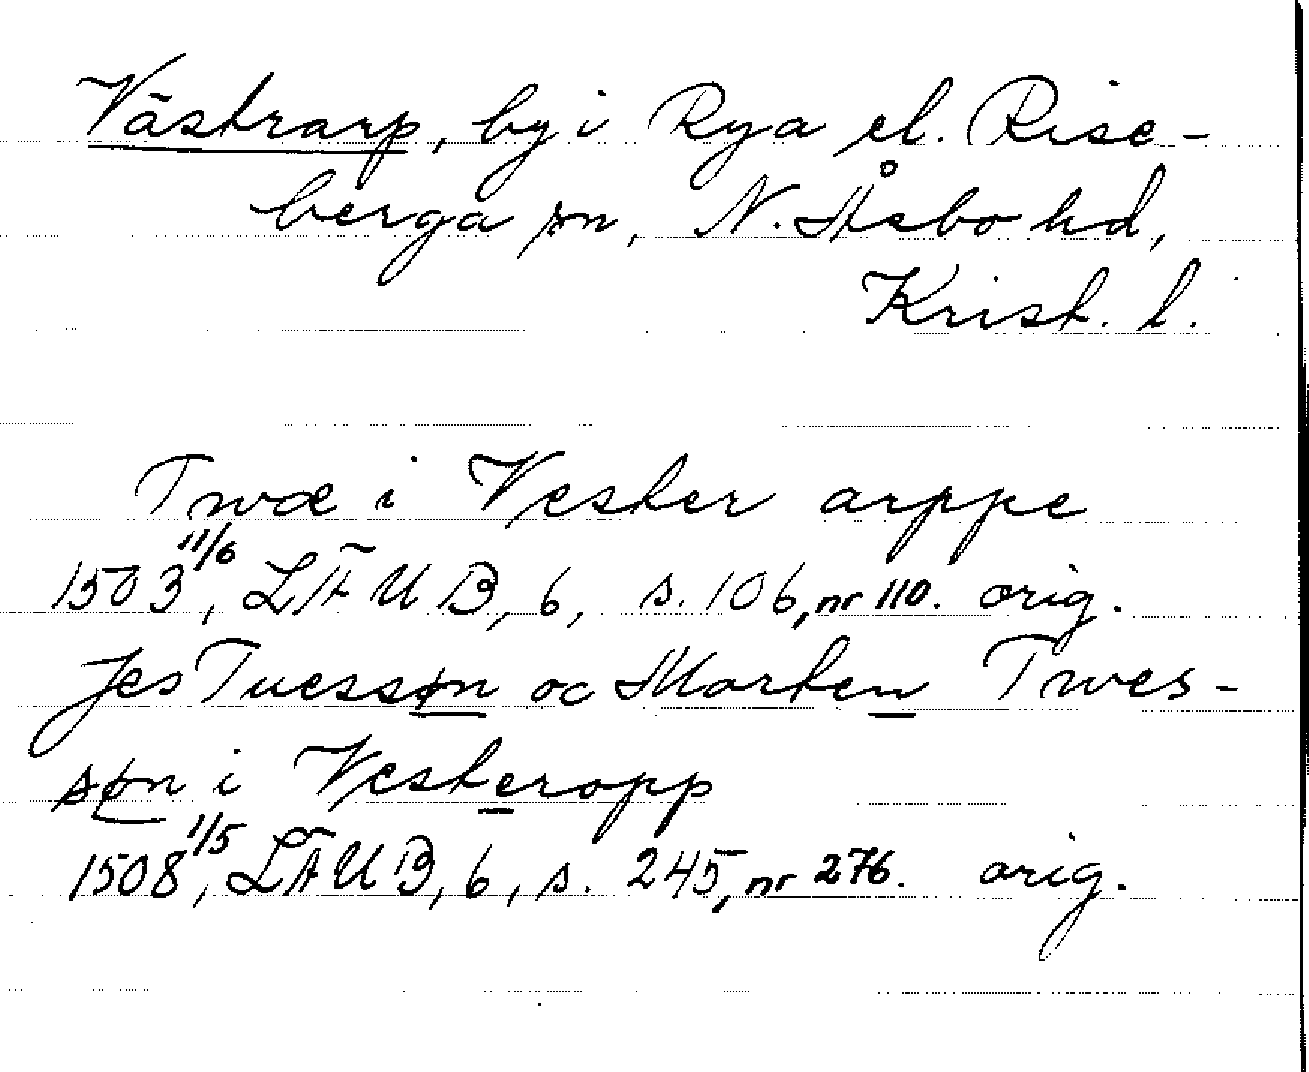 Västrarp, by i Rya el. Rise-
berga sn, N. Åsbo hd,
Krist. l.
Twæ i Vester arppe
1503 11/6, LÄUB, 6, s. 106, nr 110. orig.
Jes Tuessøn oc Marten Twes-
søn i Vesteropp
1508 1/5, LÄUB, 6, s. 245, nr 276. orig.